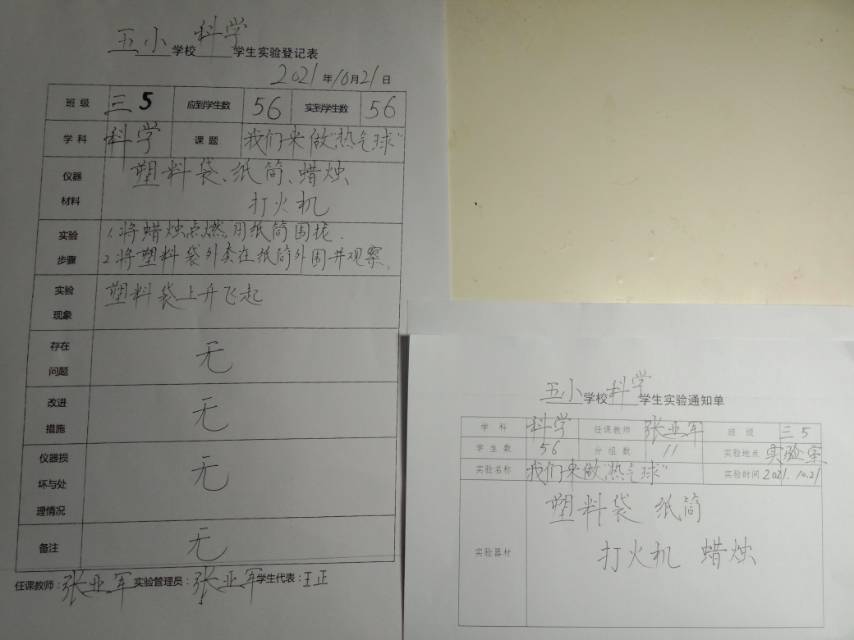 五小学校科学学生实验登记表
2021年10月21日
班级 三5 应到学生数 56 实到学生数 56
学科 科学 课题 我们来做"热气球"
仪器材料 塑料袋、纸筒、蜡烛
打火机
实验步骤 1、将蜡烛点燃,用纸筒围拢.
2、将塑料袋外套在纸筒外围并观察.
实验现象 塑料袋上升飞起
存在问题 无
改进措施 无
仪器损坏与处理情况 无
备注 无
任课教师:张亚军 实验管理员:张亚军 学生代表:王正
五小学校科学学生实验通知单
学科 科学 任课教师 张亚军 班级 三5
学生数 56 分组数 11 实验地点 实验室
实验名称 我们来做"热气球" 实验时间 2021.10.21
实验器材 塑料袋 纸筒
打火机 蜡烛